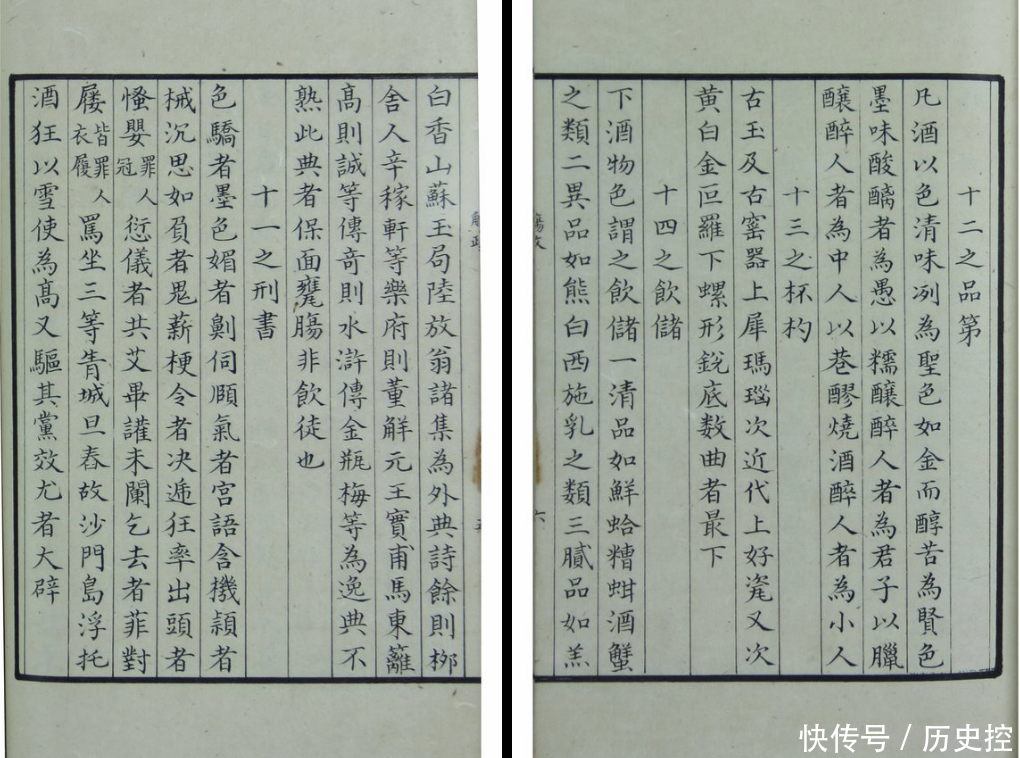 白香山蘇玉局陸放翁諸集為外典詩餘則柳
舍人辛稼軒等樂府則董解元王實甫馬東籬
高則誠等傳奇則水滸傳金瓶梅等為逸典不
熟此典者保面甕腸非飲徒也
十一之刑書
色驕者墨色媚者劓伺頤氣者宮語含機穎者
械沉思如負者鬼薪梗令者决遞狂率出頭者
慅嬰罪人冠愆儀者共艾畢讙未闌乞去者菲對
屨皆罪人衣履罵坐三等青城旦舂故沙門島浮托
酒狂以雪使為高又驅其黨效尤者大辟
十二之品第
凡酒以色清味冽為聖色如金而醇苦為賢色
墨味酸醨者為愚以糯釀醉人者為君子以臘
釀醉人者為中人以巷醪燒酒醉人者為小人
十三之杯杓
古玉及古窰器上犀瑪瑙次近代上好瓷又次
黄白金叵羅下螺形銳底数曲者最下
十四之飲儲
下酒物色謂之飲儲一清品如鮮蛤糟蚶酒蟹
之類二異品如熊白西施乳之類三膩品如羔
快传号 / 历史控